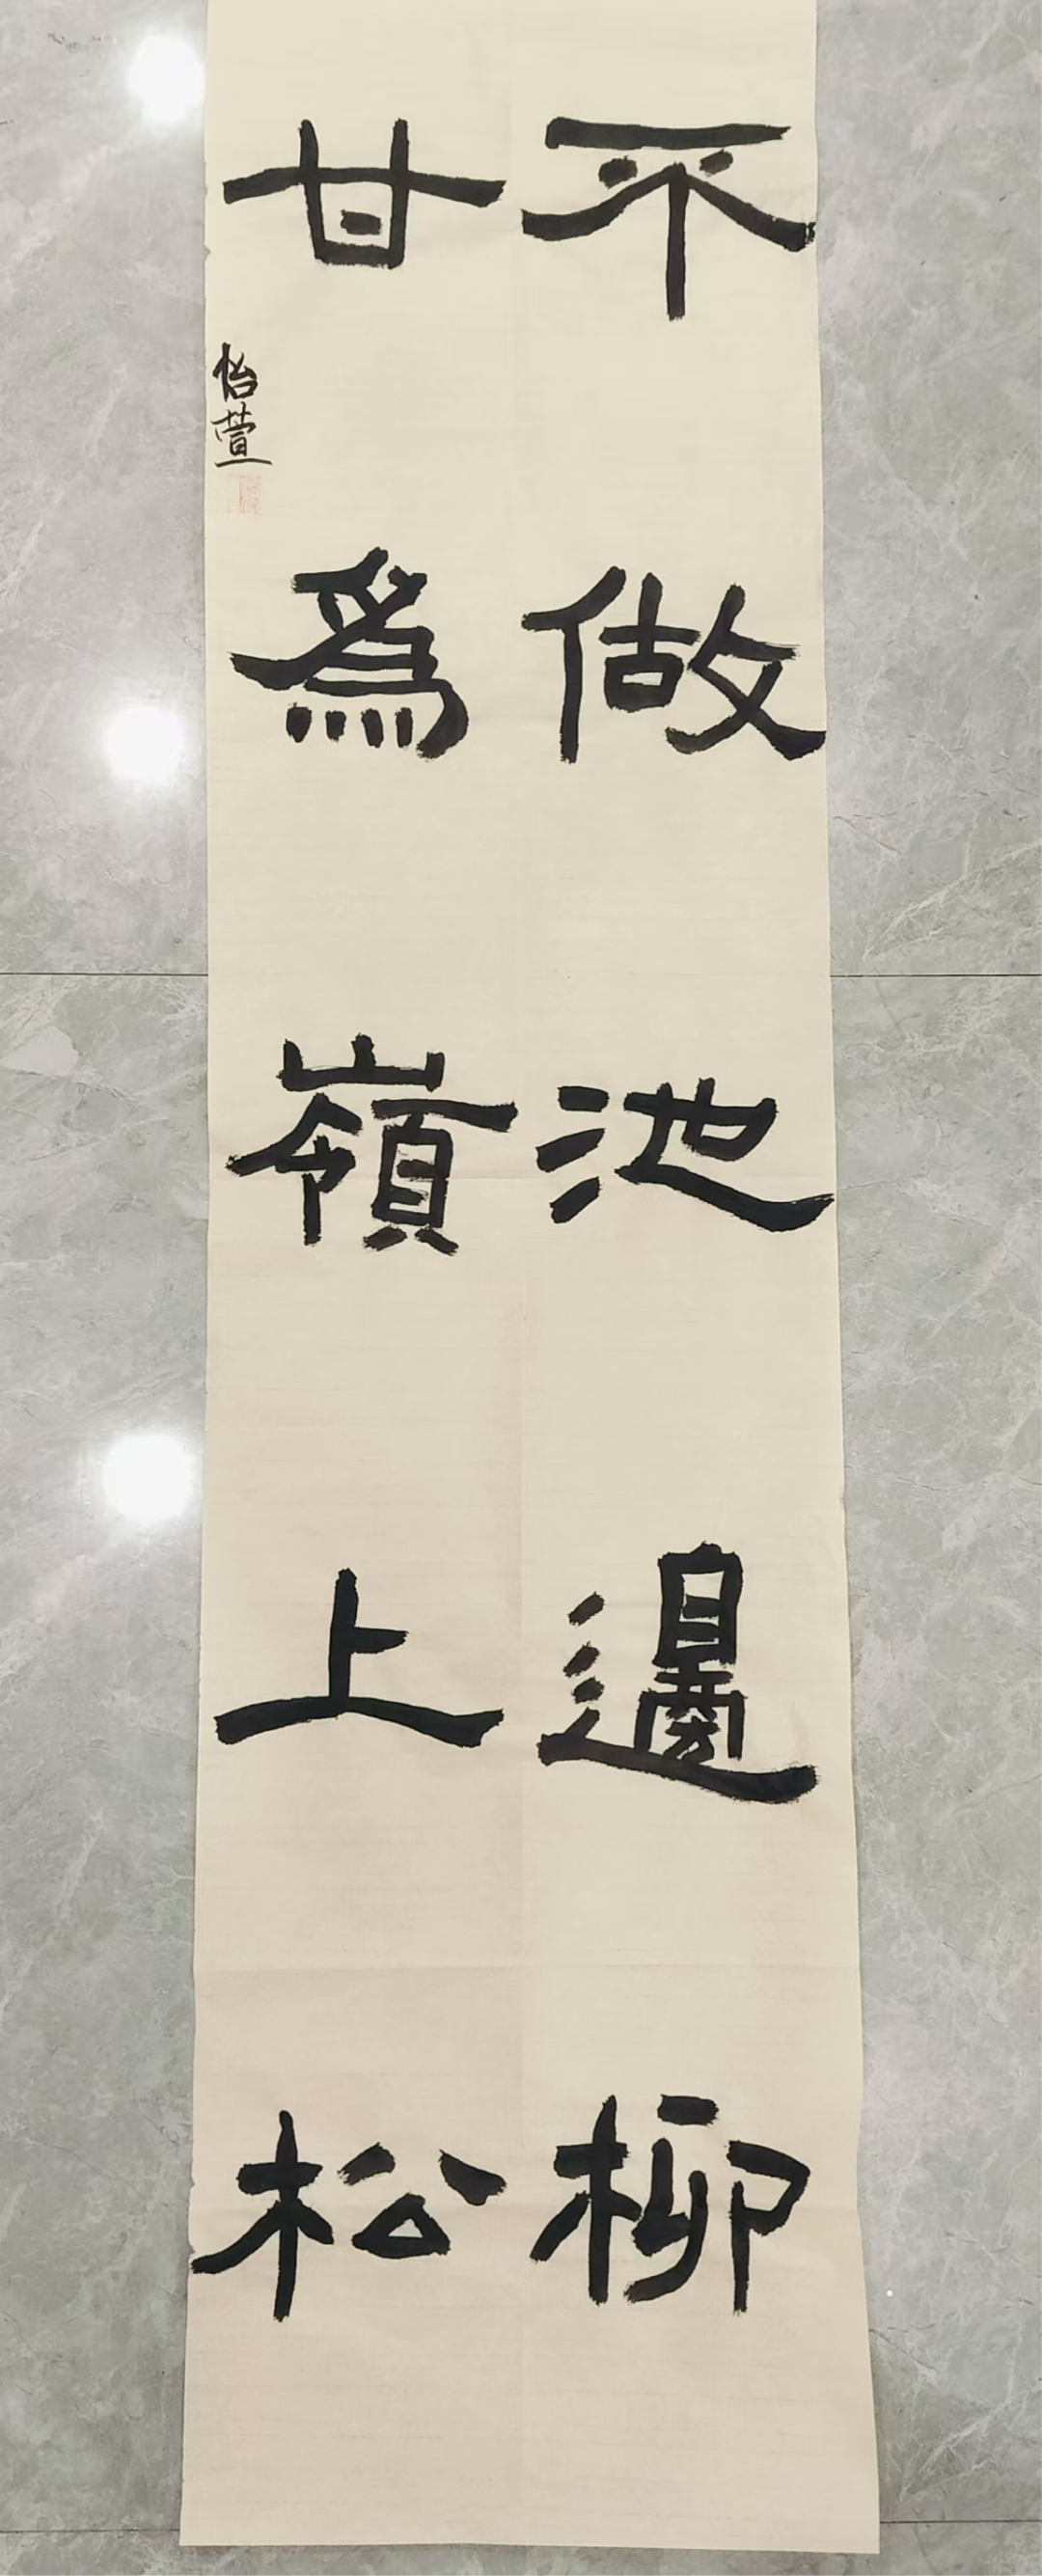 不做池邊柳
甘為嶺上松
怡萱